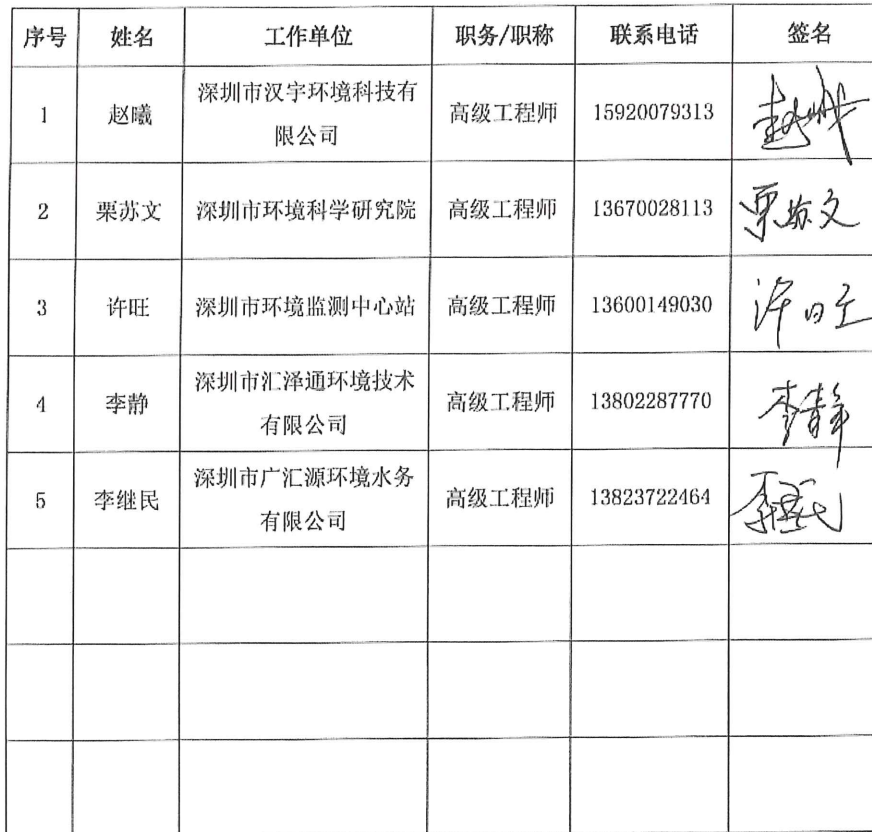 序号 姓名 工作单位 职务/职称 联系电话 签名
1 赵曦 深圳市汉宇环境科技有
限公司 高级工程师 15920079313
2 栗苏文 深圳市环境科学研究院 高级工程师 13670028113 栗苏文
3 许旺 深圳市环境监测中心站 高级工程师 13600149030 许旺
4 李静 深圳市汇泽通环境技术
有限公司 高级工程师 13802287770 李静
5 李继民 深圳市广汇源环境水务
有限公司 高级工程师 13823722464 李继民